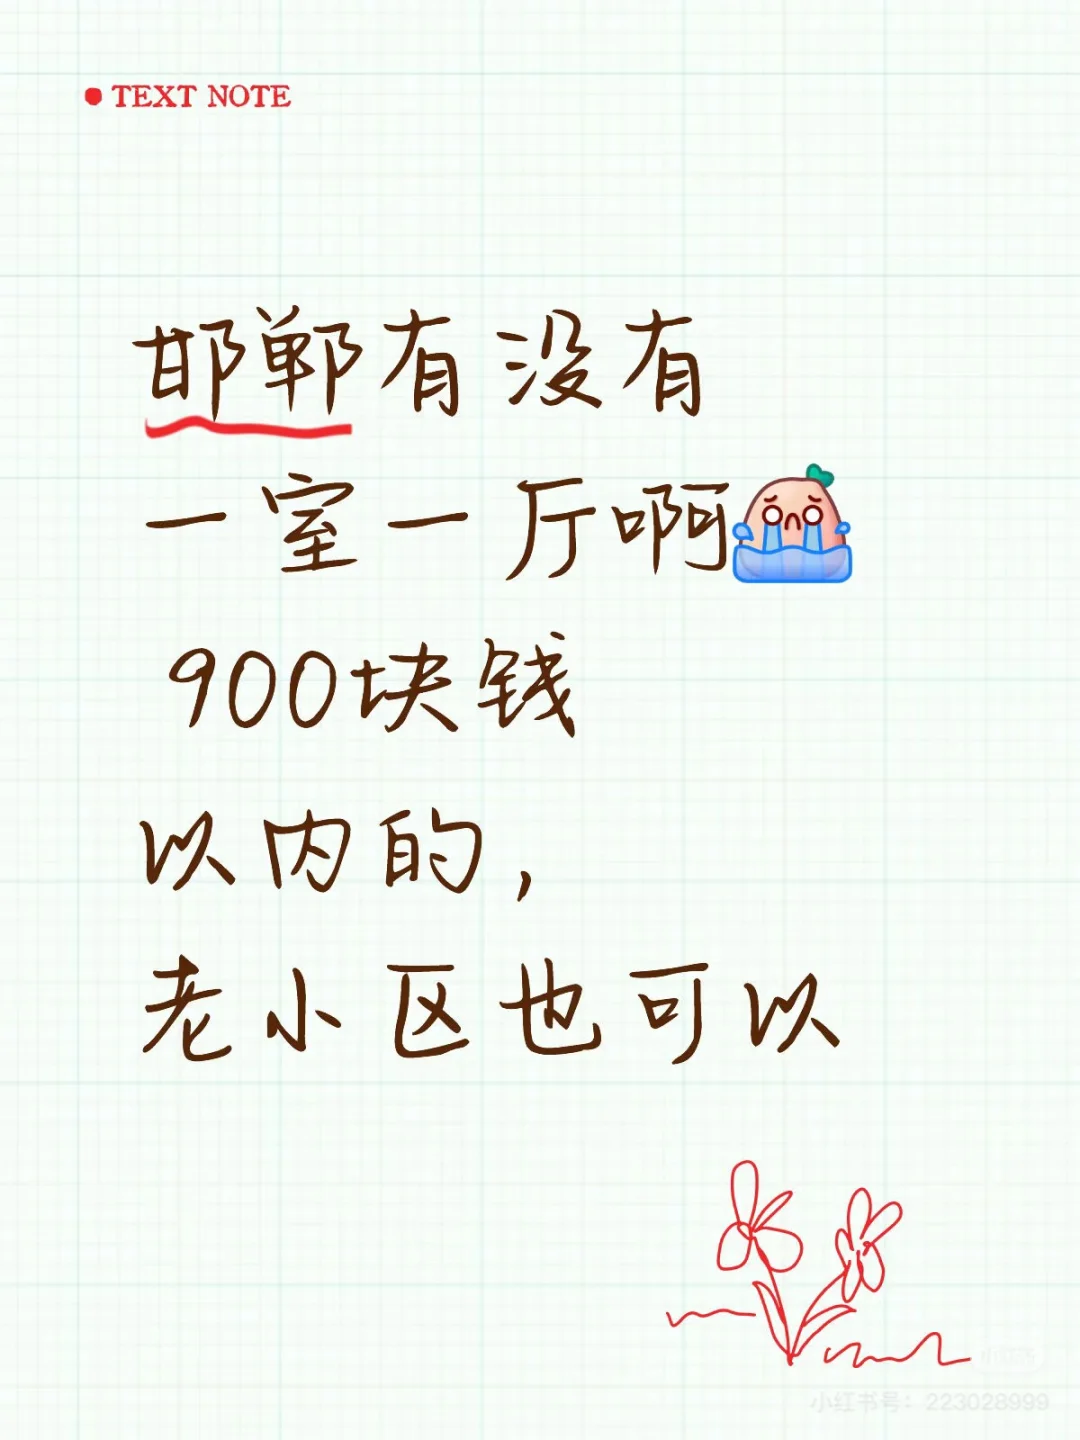 TEXT NOTE
邯郸有没有
一室一厅啊
900块钱
以内的，
老小区也可以
小红书号：223028999